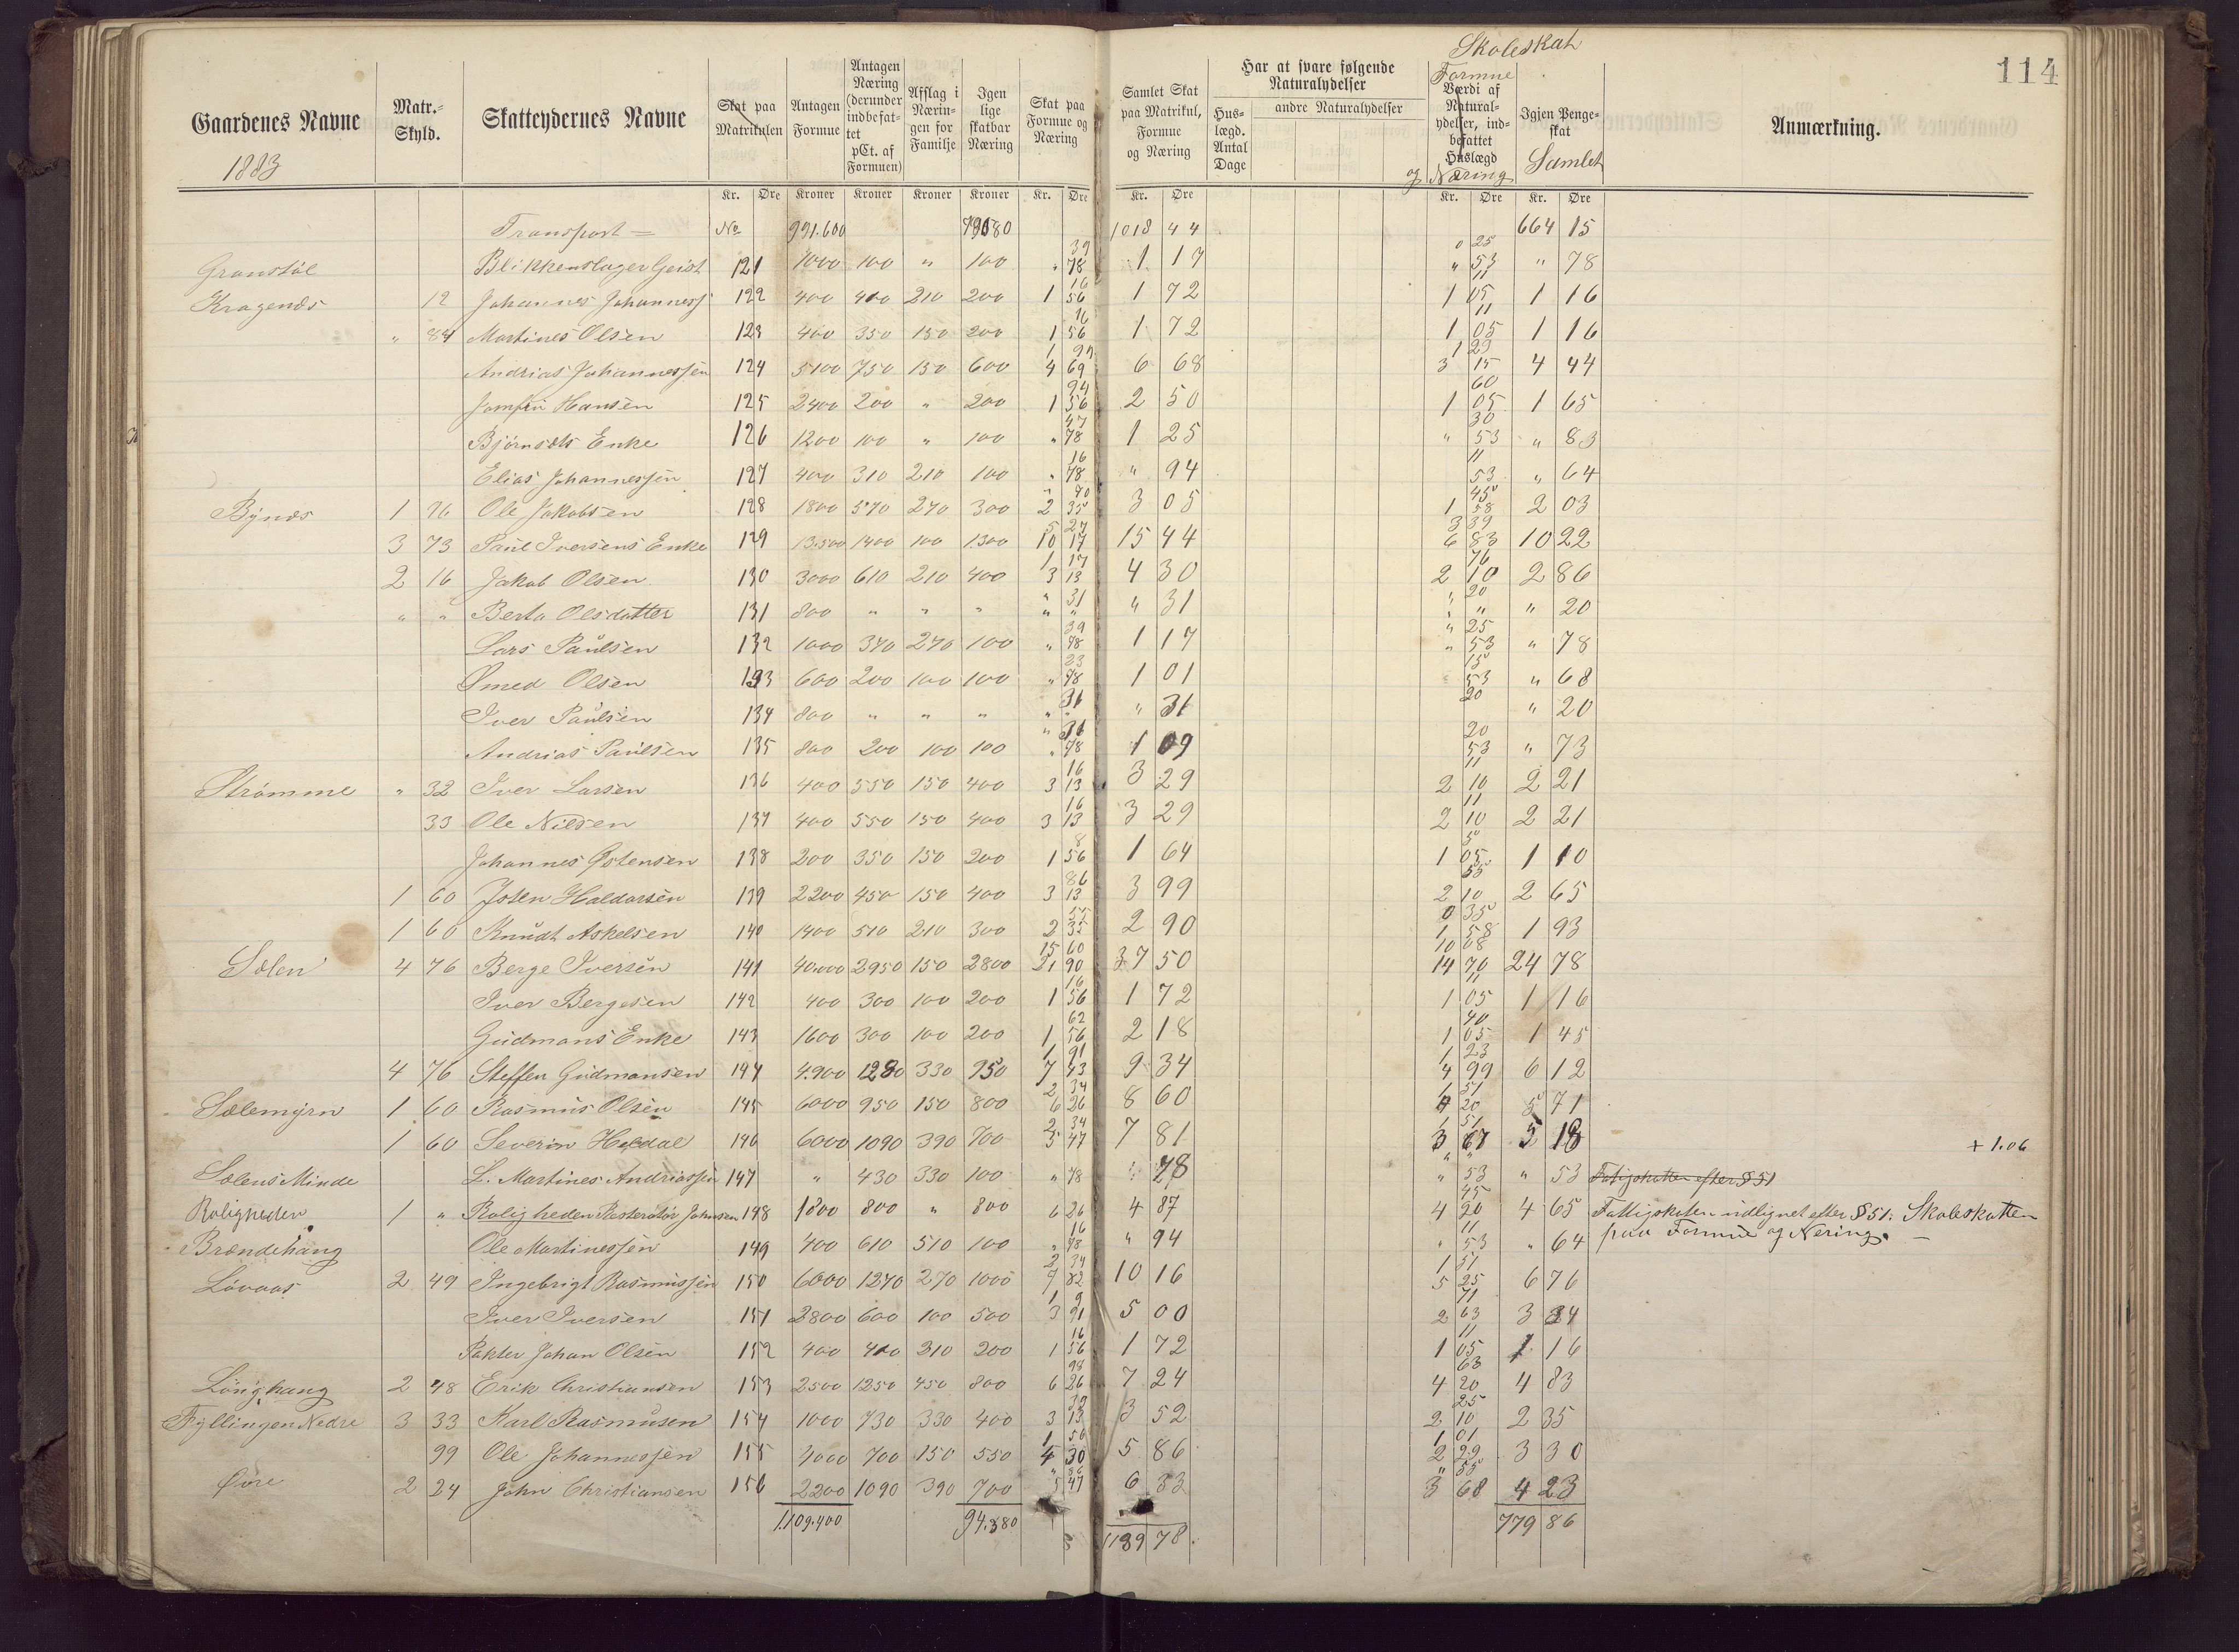 114
Skoleskat
Gaardenes Navne
1883
Matr.-Skyld.
Skatteydernes Navne
Skat paa Matrikulen
Antagen Formue
Antagen Næring (derunder indbefattet pCt. af Formuen)
Afslag i Næringen for Familje
Igen lige skatbar Næring
Skat paa Formue og Næring
Samlet Skat paa Matrikul, Formue og Næring
Har at svare følgende Naturalydelser
Huslægd. Antal Dage
andre Naturalydelser
Formue
Værdi af Naturalydelser, indbefattet Huslægd
og Næring
Igjen Pengeskat
Samlet
Anmærkning.
Kr. Øre Kroner Kroner Kroner Kroner Kr. Øre Kr. Øre Kr. Øre Kr. Øre
Transport = No 991.600 1018 44 664 15
Blikkenslager Geist 121 1000 100 " 100 " 39 78 1 17 0 25 " 53 " 78
Kragenæs 12 Johannes Johanness 122 400 400 210 200 16 1 56 1 72 11 1 05 1 16
" 84 Martines Olsen 123 400 350 150 200 16 1 56 1 72 11 1 05 1 16
Andrias Johannessen 124 5100 750 150 600 1 99 4 69 6 68 1 29 3 15 4 44
Jomfru Hansen 125 2400 200 " 200 94 1 56 2 50 60 1 05 1 65
Enke 126 1200 100 " 100 47 " 78 1 25 30 " 53 " 83
Elias Johannessen 127 400 310 210 100 16 " 78 " 94 11 53 " 64
Bynæs 1 96 Ole Jakobsen 128 1800 570 270 300 " 70 2 35 3 05 45 1 58 2 03
3 73 Paul Iversens Enke 129 13.500 1400 100 1300 5 27 10 17 15 44 3 39 6 83 10 22
2 16 Jakob Olsen 130 3000 610 210 400 1 17 3 13 4 30 76 2 10 2 86
" " Berta Olsdatter 131 800 " " " " 31 " " " 31 " 20 " " " 20
Lars Paulsen 132 1000 370 270 100 39 " 78 1 17 " 25 " 53 " 78
Smed Olsen 133 600 200 100 100 23 " 78 1 01 15 53 " 68
Iver Paulsen 134 800 " " " 31 " " 31 20 " 20
Andrias Paulsen 135 800 200 100 100 " 31 " 78 1 09 20 53 " 73
Strømme " 32 Iver Larsen 136 400 550 150 400 16 3 13 3 29 11 2 10 2 21
33 Ole Nilsen 137 400 550 150 400 16 3 13 3 29 11 2 10 2 21
Johannes Østensen 138 200 350 150 200 8 1 56 1 64 5 1 05 1 10
1 60 Josen Haldorsen 139 2200 450 150 400 86 3 13 3 99 55 2 10 2 65
1 60 Knudt Askelsen 140 1400 510 210 300 55 2 35 2 90 0 35 1 58 1 93
Sælen 4 76 Berge Iversen 141 40.000 2950 150 2800 15 60 21 90 37 50 10 08 14 70 24 78
Iver Bergesen 142 400 300 100 200 16 1 56 1 72 11 1 05 1 16
Gudmans Enke 143 1600 300 100 200 62 1 56 2 18 40 1 05 1 45
4 76 Steffen Gudmansen 144 4.900 1280 330 950 1 91 7 43 9 34 1 23 4 99 6 12
Sælemyrn 1 60 Rasmus Olsen 145 6000 950 150 800 2 34 6 26 8 60 1 51 4 20 5 71
1 60 Severin Haldal 146 6000 1090 390 700 2 34 5 47 7 81 1 51 3 67 5 18 + 1.06
Sælens Minde L. Martines Andriassen 147 " 430 330 100 " 78 " 78 " " " 53 " 53 Fatigskatten efter § 51
Roligheden 1 " Roligheden Johnsen 148 1800 800 " 800 6 26 4 87 45 4 20 4 65 Fattigskaten udlignet efter § 51. Skoleskatten
Brændehaug Ole Martinessen 149 400 610 510 100 16 " 78 " 94 11 " 53 " 64 paa Formue og Næring.
Løvaas 2 49 Ingebrigt Rasmussen 150 6000 1270 270 1000 2 34 7 82 10 16 1 51 5 25 6 76
Iver Iversen 151 2800 600 100 500 1 9 3 91 5 00 71 2 63 3 34
Pakter Johan Olsen 152 400 410 210 200 16 1 56 1 72 11 1 05 1 16
Lønghaug 2 48 Erik Christiansen 153 2500 1250 450 800 98 6 26 7 24 63 4 20 4 83
Fyllingen Nedre 3 33 Karl Rasmusen 154 1000 730 330 400 39 3 13 3 52 25 2 10 2 35
99 Ole Johannessen 155 4000 700 150 550 1 56 4 30 5 86 1 01 2 29 3 30
Øvre 2 24 John Christiansen 156 2200 1090 390 700 " 86 5 47 6 33 " 55 3 68 4 23
1.109.400 94.380 1139 78 779 86